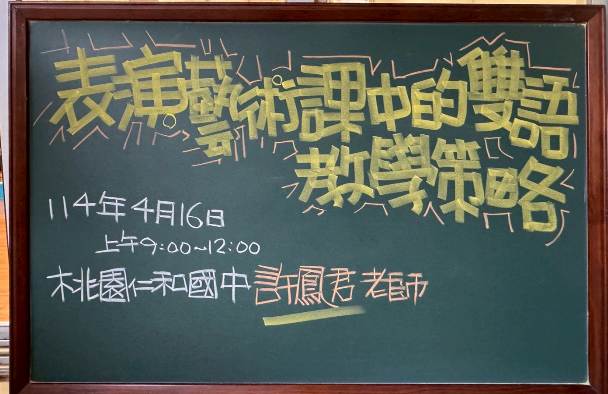 表演藝術課中的雙語
教學策略
114年4月16日
上午9:00~12:00
桃園仁和國中 許鳳君 老師